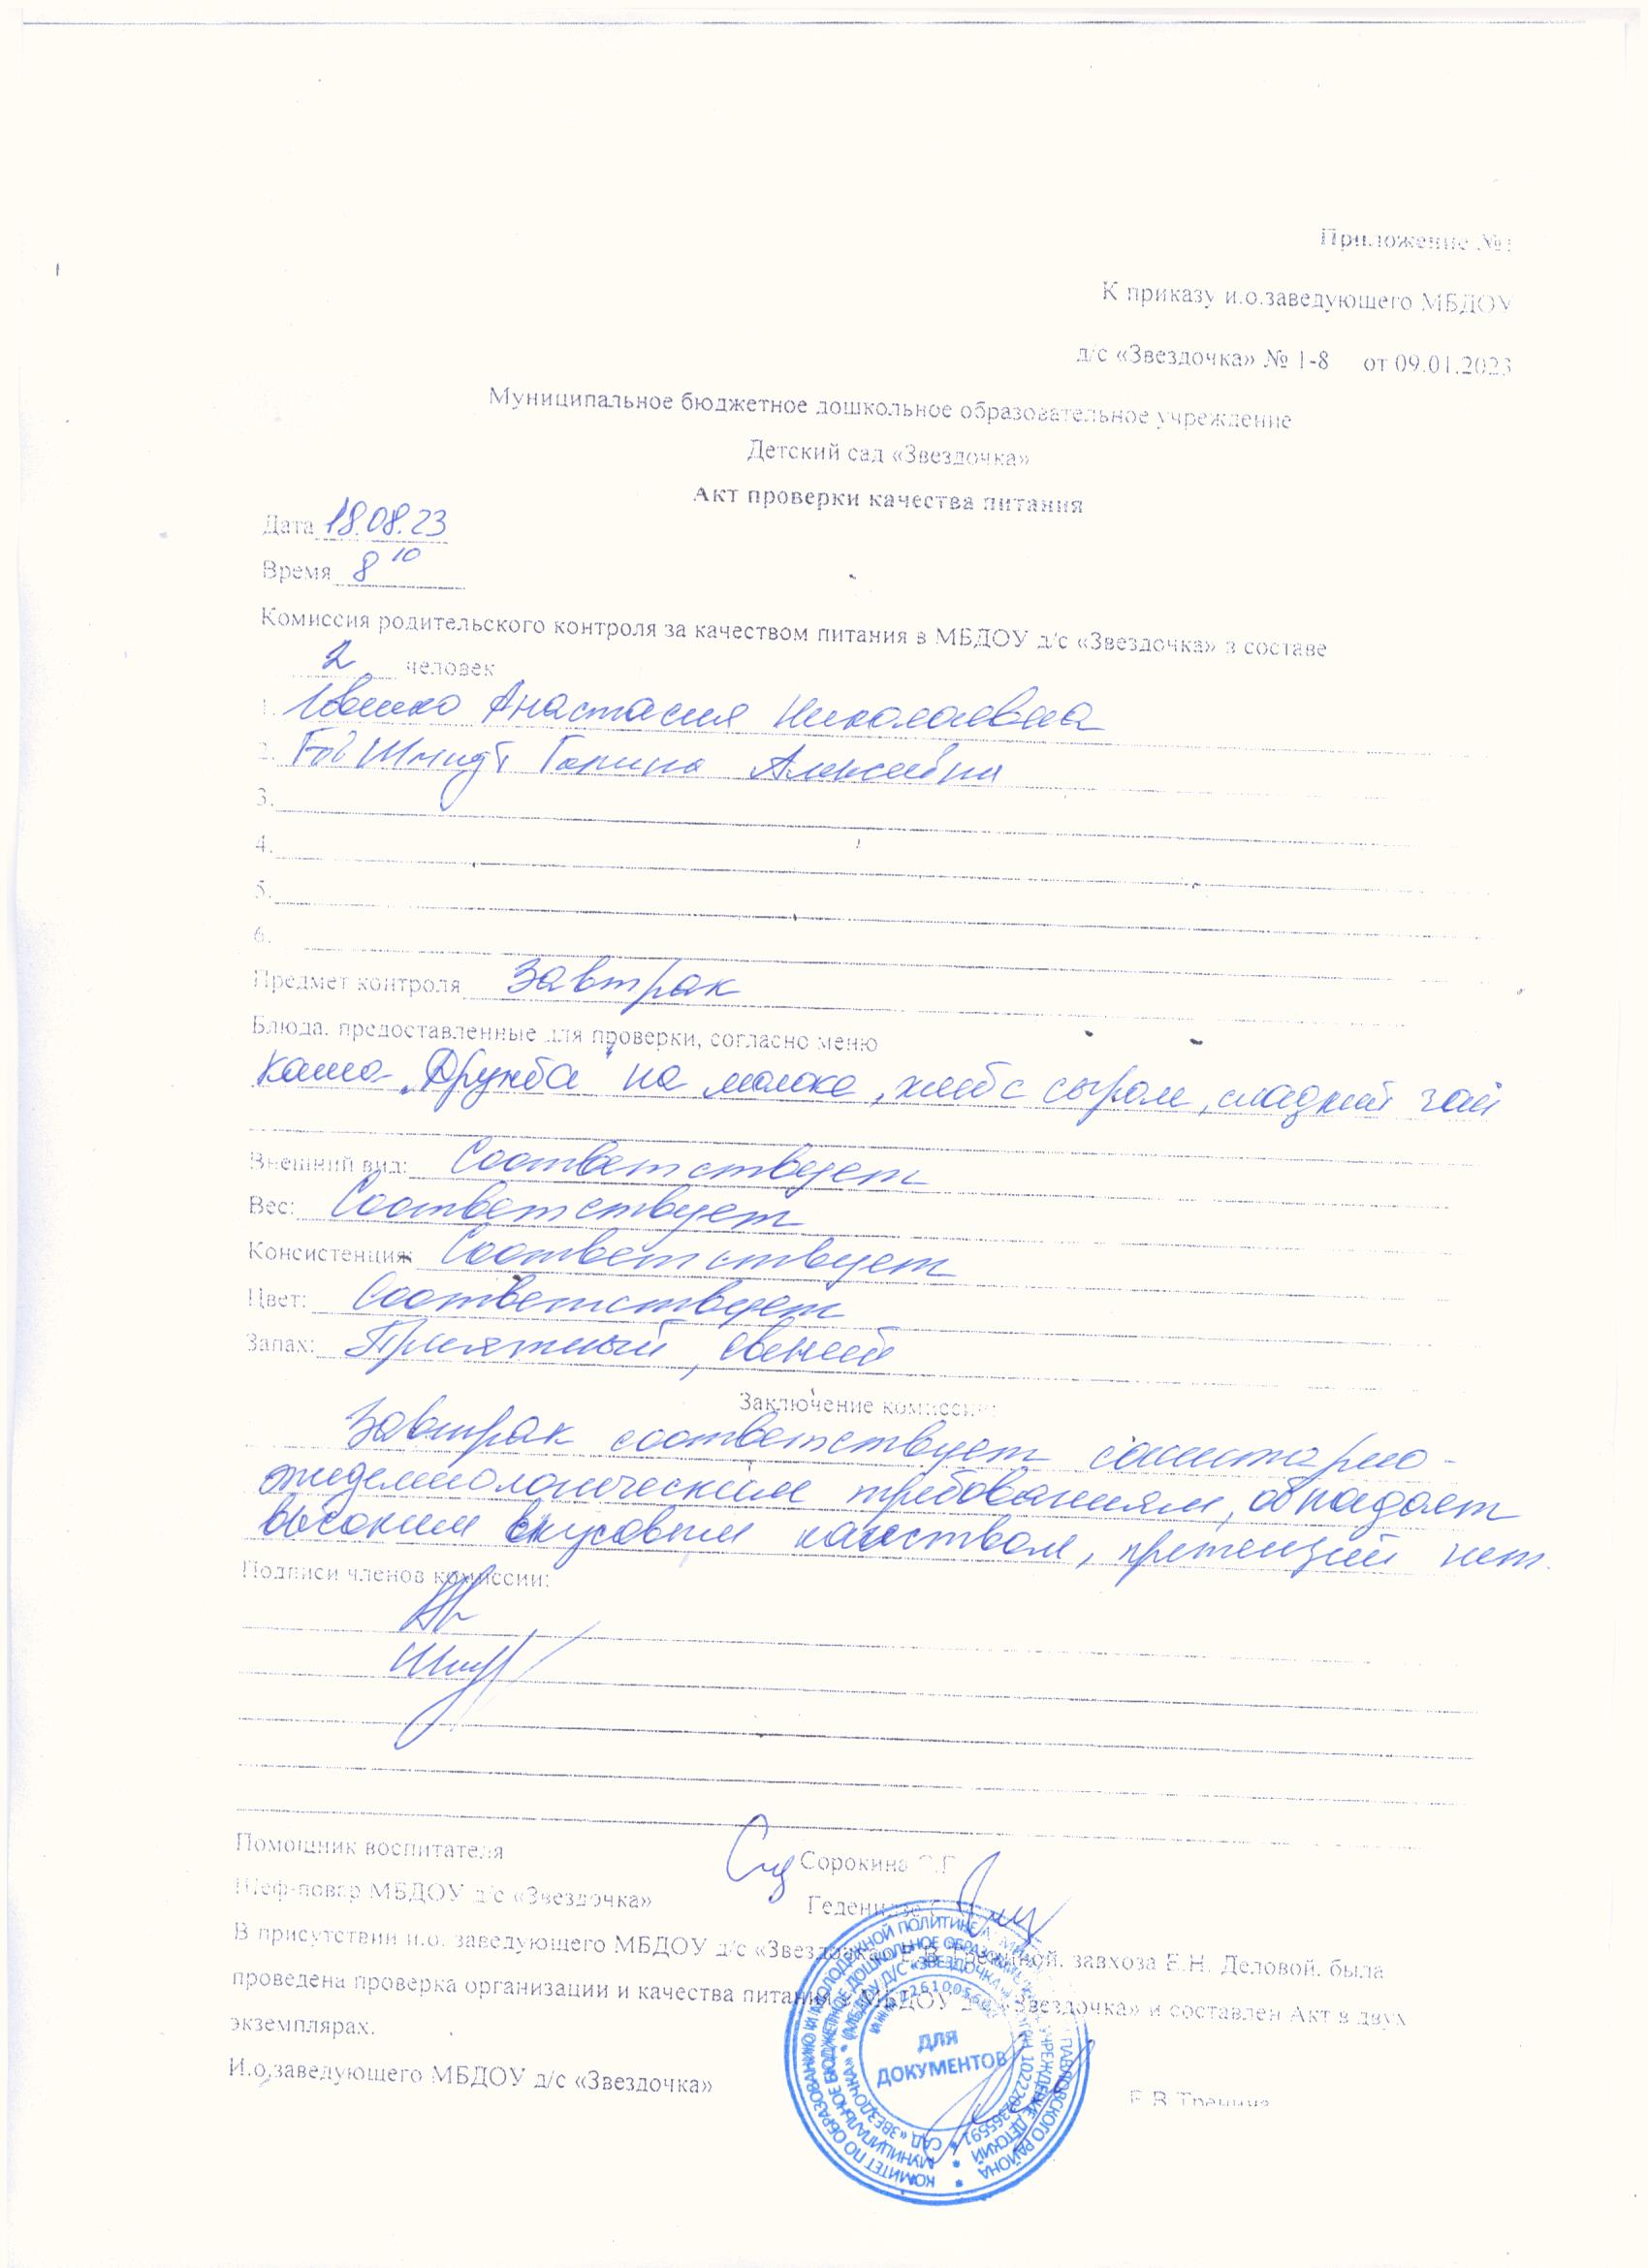 Приложение №1
К приказу и.о.заведующего МБДОУ
д/с «Звездочка» № 1-8 от 09.01.2023
Муниципальное бюджетное дошкольное образовательное учреждение
Детский сад «Звездочка»
Акт проверки качества питания
Дата 18.08.23
Время 8 10
Комиссия родительского контроля за качеством питания в МБДОУ д/с «Звездочка» в составе
2 человек
1. Ивашко Анастасия Николаевна
2. Шмидт Галина Алексеевна
3.
4.
5.
6.
Предмет контроля завтрак
Блюда, предоставленные для проверки, согласно меню
каша "Дружба" на молоке, хлеб с сыром, сладкий чай
Внешний вид: Соответствует
Вес: Соответствует
Консистенция: Соответствует
Цвет: Соответствует
Запах: Приятный, свежий
Заключение комиссии:
Завтрак соответствует санитарно-
эпидемиологическим требованиям, обладает
высоким вкусовым качеством, претензий нет.
Подписи членов комиссии:
Помощник воспитателя Сорокина
Шеф-повар МБДОУ д/с «Звездочка»
В присутствии и.о. заведующего МБДОУ д/с «Звездочка» Е.В. Трениной, завхоза Е.Н. Деловой, была
проведена проверка организации и качества питания в МБДОУ д/с «Звездочка» и составлен Акт в двух
экземплярах.
И.о.заведующего МБДОУ д/с «Звездочка» Е.В.Тренина
ДЛЯ
ДОКУМЕНТОВ